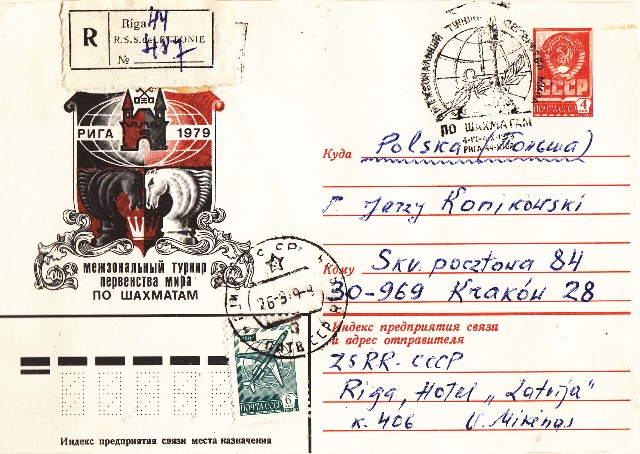 Riga 44
R
R.S.S. de LETTONIE
№ 487
МЕЖЗОНАЛЬНЫЙ ТУРНИР
ПО ШАХМАТАМ
РИГА
СССР
ПОЧТА СССР 4
РИГА 1979
межзональный турнир
первенства мира
ПО ШАХМАТАМ
Куда Polska (Польша)
г. Jerzy Konikowski
Кому Skr. pocztowa 84
30-969 Kraków 28
Индекс предприятия связи
и адрес отправителя
ZSRR-СССР
Riga, Hotel „Latvija"
к. 406 V. Mikenas
ПОЧТА СССР 6
Индекс предприятия связи места назначения